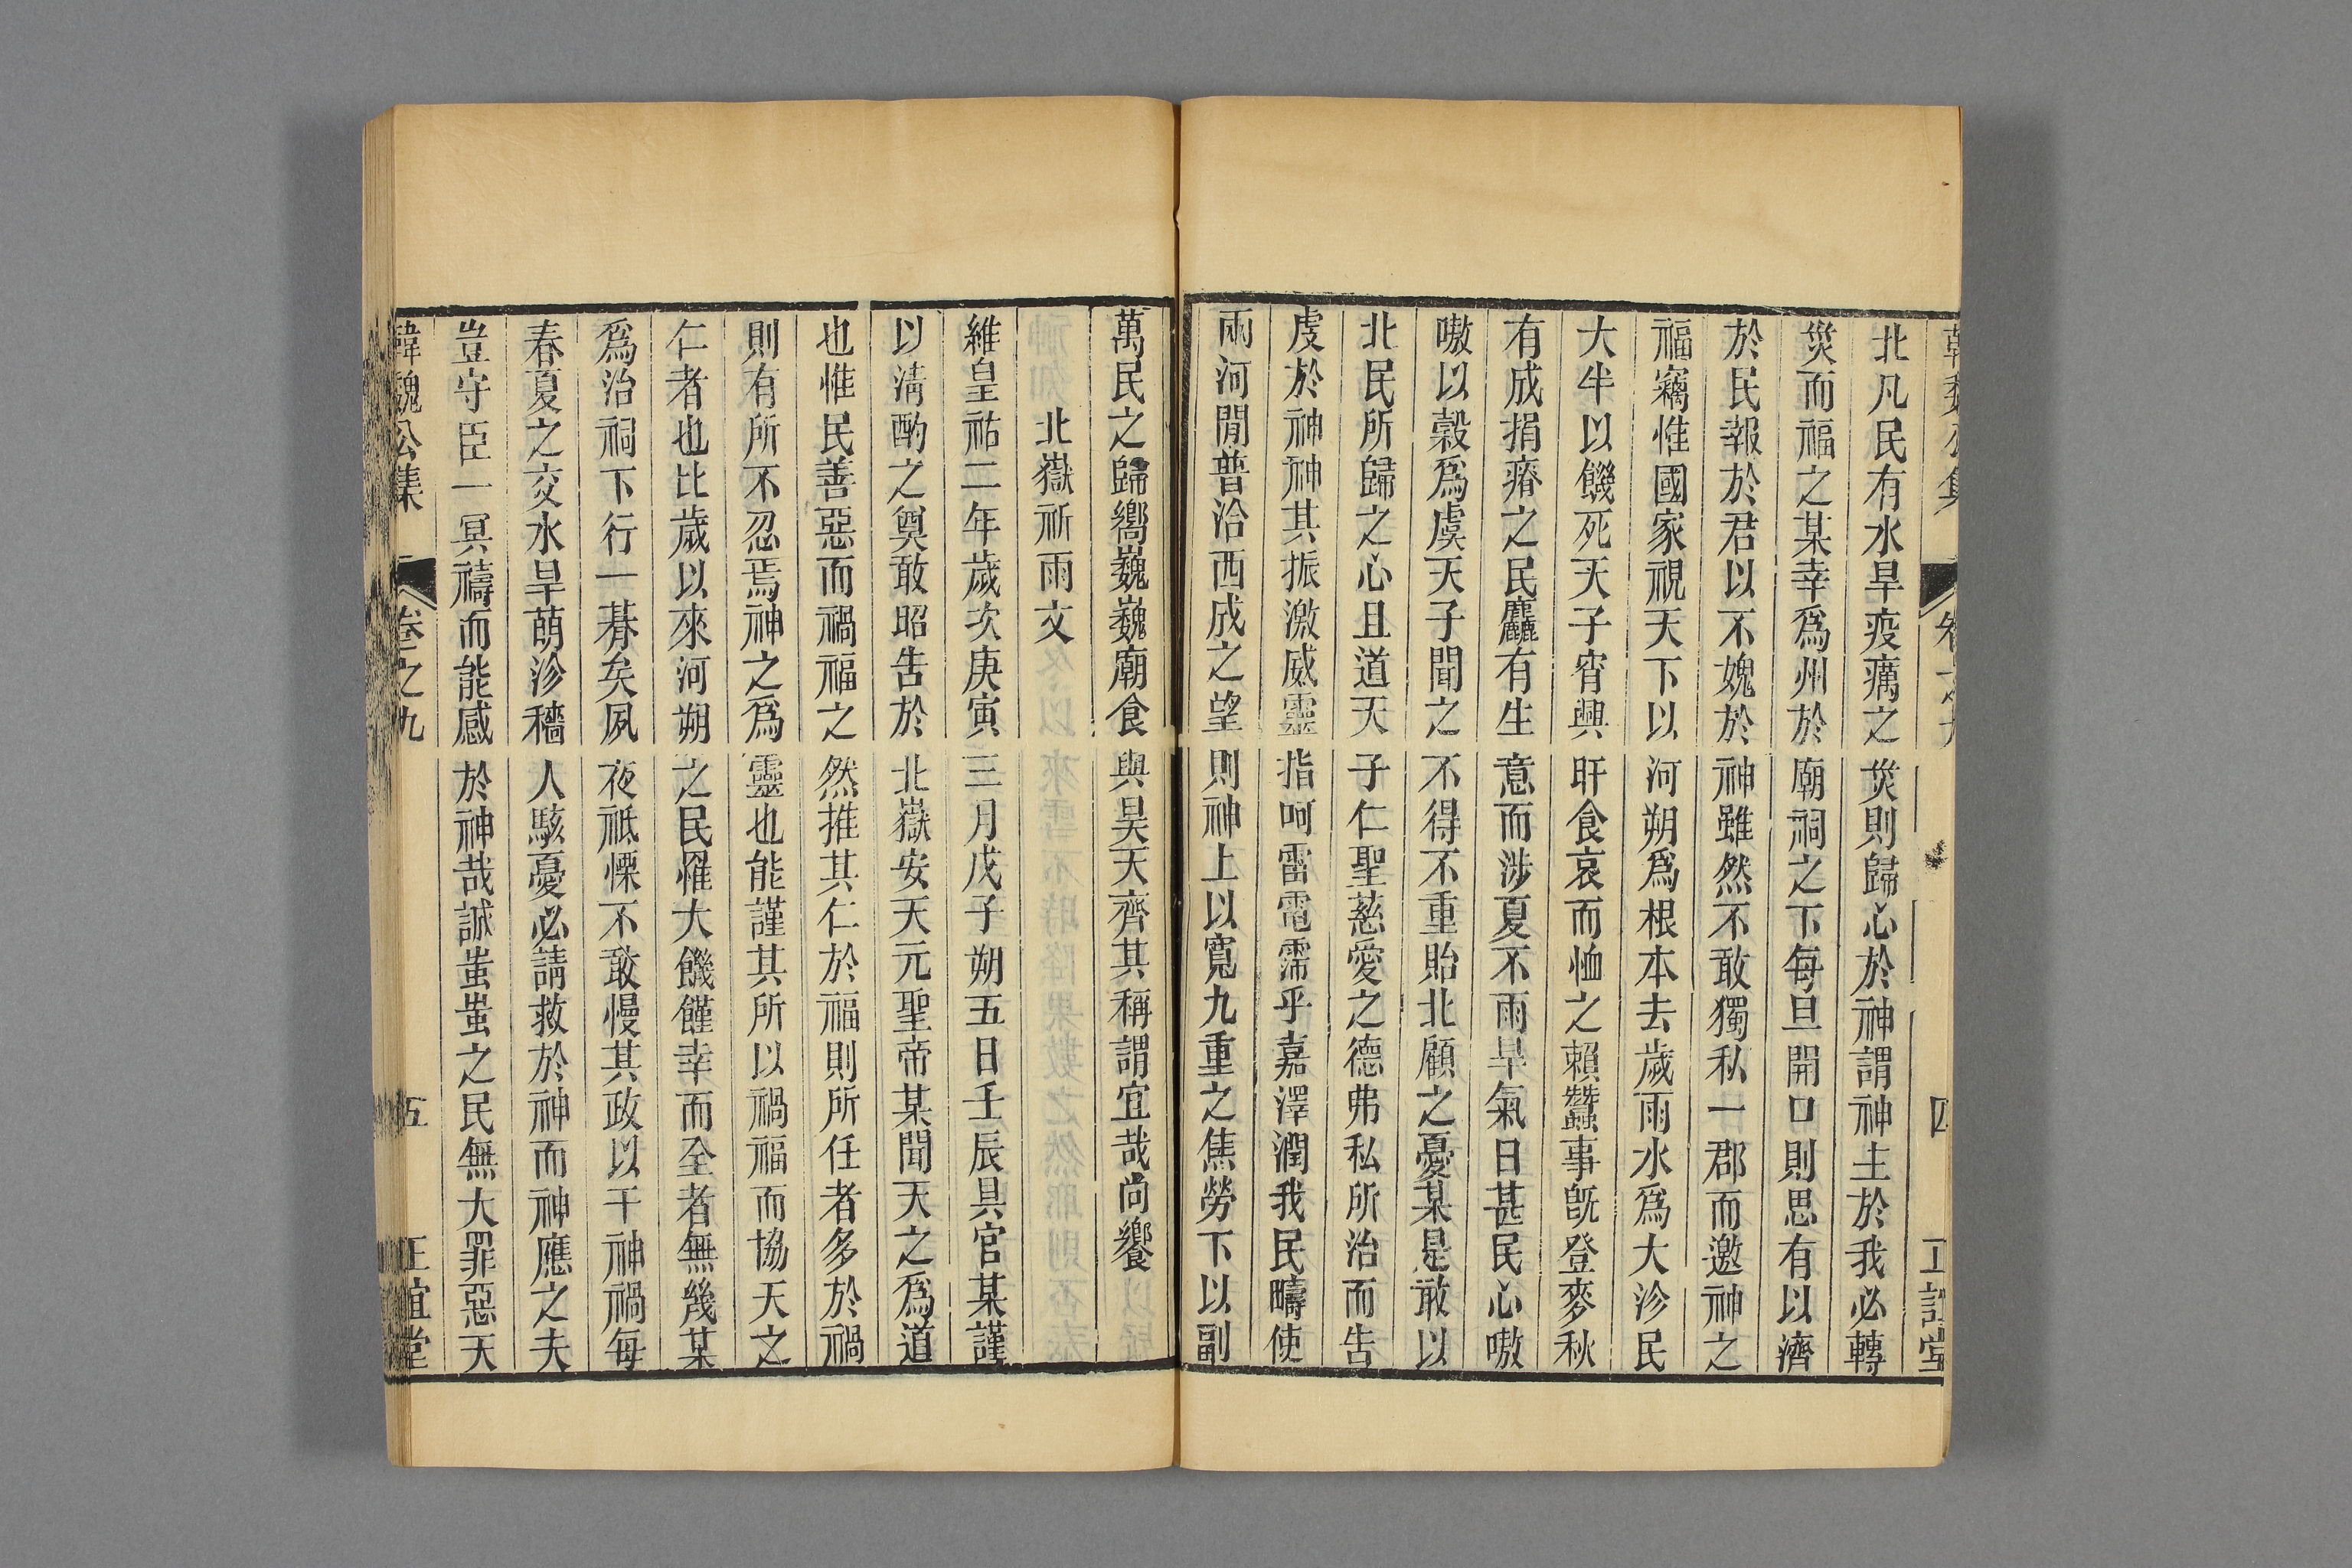 韓魏公集 卷之九 四 正誼堂
北凡民有水旱疫癘之災則歸心於神謂神主於我必轉
災而福之某幸爲州於廟祠之下每旦開口則思有以濟
於民報於君以不媿於神雖然不敢獨私一郡而邀神之
福竊惟國家視天下以河朔爲根本去歲雨水爲大沴民
大半以饑死天子宵興旰食哀而恤之賴蠶事旣登麥秋
有成捐瘠之民麤有生意而涉夏不雨旱氣日甚民心嗷
嗷以穀爲虞天子聞之不得不重貽北顧之憂某是敢以
北民所歸之心且道天子仁聖慈愛之德弗私所治而告
虔於神神其振激威靈指呵雷電霈乎嘉澤潤我民疇使
兩河閒普洽西成之望則神上以寬九重之焦勞下以副
萬民之歸嚮巍巍廟食與昊天齊其稱謂宜哉尚饗
北嶽祈雨文
維皇祐二年歲次庚寅三月戊子朔五日壬辰具官某謹
以淸酌之奠敢昭告於北嶽安天元聖帝某聞天之爲道
也惟民善惡而禍福之然推其仁於福則所任者多於禍
則有所不忍焉神之爲靈也能謹其所以禍福而協天之
仁者也比歲以來河朔之民罹大饑饉幸而全者無幾某
爲治祠下行一朞矣夙夜祗慄不敢慢其政以干神禍每
春夏之交水旱萌沴穡人駭憂必請救於神而神應之夫
豈守臣一冥禱而能感於神哉誠蚩蚩之民無大罪惡天
韓魏公集 卷之九 五 正誼堂